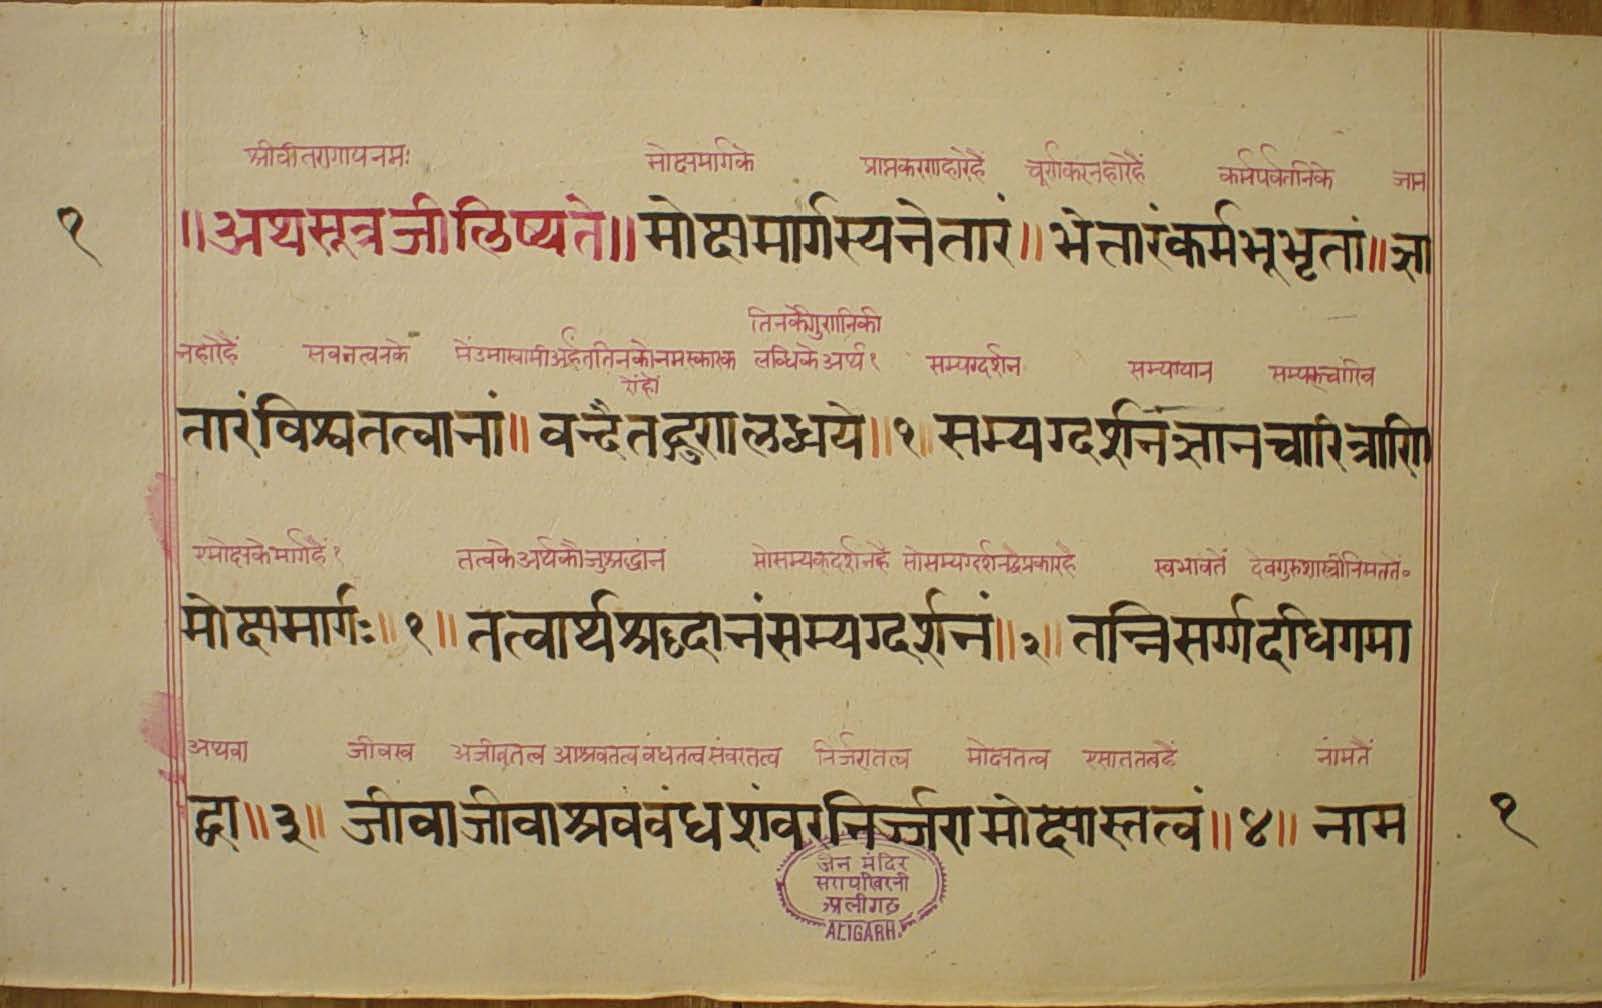 श्रीवीतरागायनमः मोक्षमार्गके प्राप्तकरणहारेहैं चूर्णकरनहारेहैं कर्मपर्वतनिके जान
१ ॥अथसूत्रजीलिष्यते॥ मोक्षमार्गस्यनेतारं॥ भेत्तारंकर्मभूभृतां॥ ज्ञा
तिनकेगुणनिकी
नहारेहैं सवतत्वनके मेंउमास्वामीअर्हंततिनकोनमस्कारक लब्धिकेअर्थ१ सम्यग्दर्शन सम्यग्यान सम्यकचारित्र
रोंहों
तारंविश्वतत्वानां॥ वन्दैतद्गुणलब्धये॥१॥ सम्यग्दर्शनज्ञानचारित्राणि
एमोक्षकेमार्गहैं१ तत्वकेअर्थकौजुश्रद्धांनं सोसम्यकदर्शनहै सोसम्यग्दर्शनद्वेप्रकारहै स्वभावतें देवगुरुशास्त्रनिमततें॰
मोक्षमार्गः॥१॥ तत्वार्थश्रद्दानंसम्यग्दर्शनं॥२॥ तन्निसर्ग्गदधिगमा
अथवा जीवत्व अजीवतत्व आश्रवतत्व वंधतत्व संवरतत्व निर्जरातत्व मोक्षतत्व एसाततत्वहैं नांमतैं
द्वा॥३॥ जीवाजीवाश्रवंवंधशंवरनिर्ज्जरामोक्षास्तत्वं॥४॥ नाम १
जैन मंदिर
सरायखिरनी
अलीगढ़
ALIGARH.